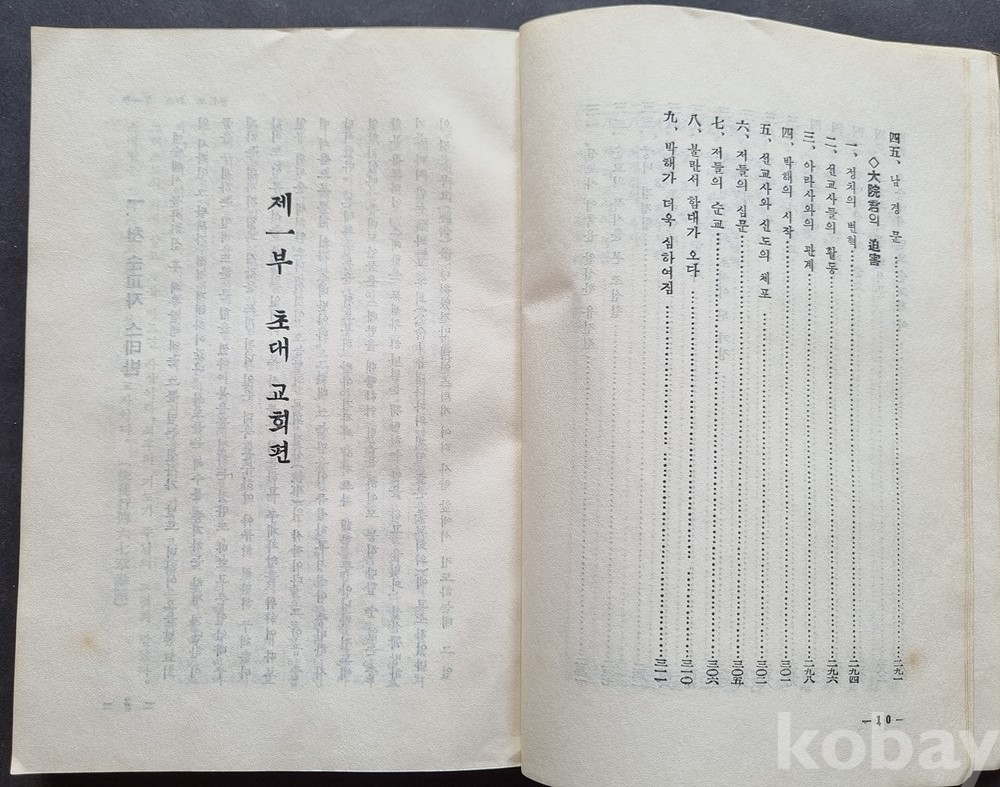 四五、남경문……二九一
◇大院君의 迫害
一、정치의 변혁……二九四
二、선교사들의 활동……二九六
三、아라사와의 관계……二九八
四、박해의 시작……三〇一
五、선교사와 신도의 체포……三〇二
六、저들의 심문……三〇五
七、저들의 순교……三〇六
八、불란서 함대가 오다……三一〇
九、박해가 더욱 심하여짐……三一一
—10—
제一부 초대 교회편
kobay